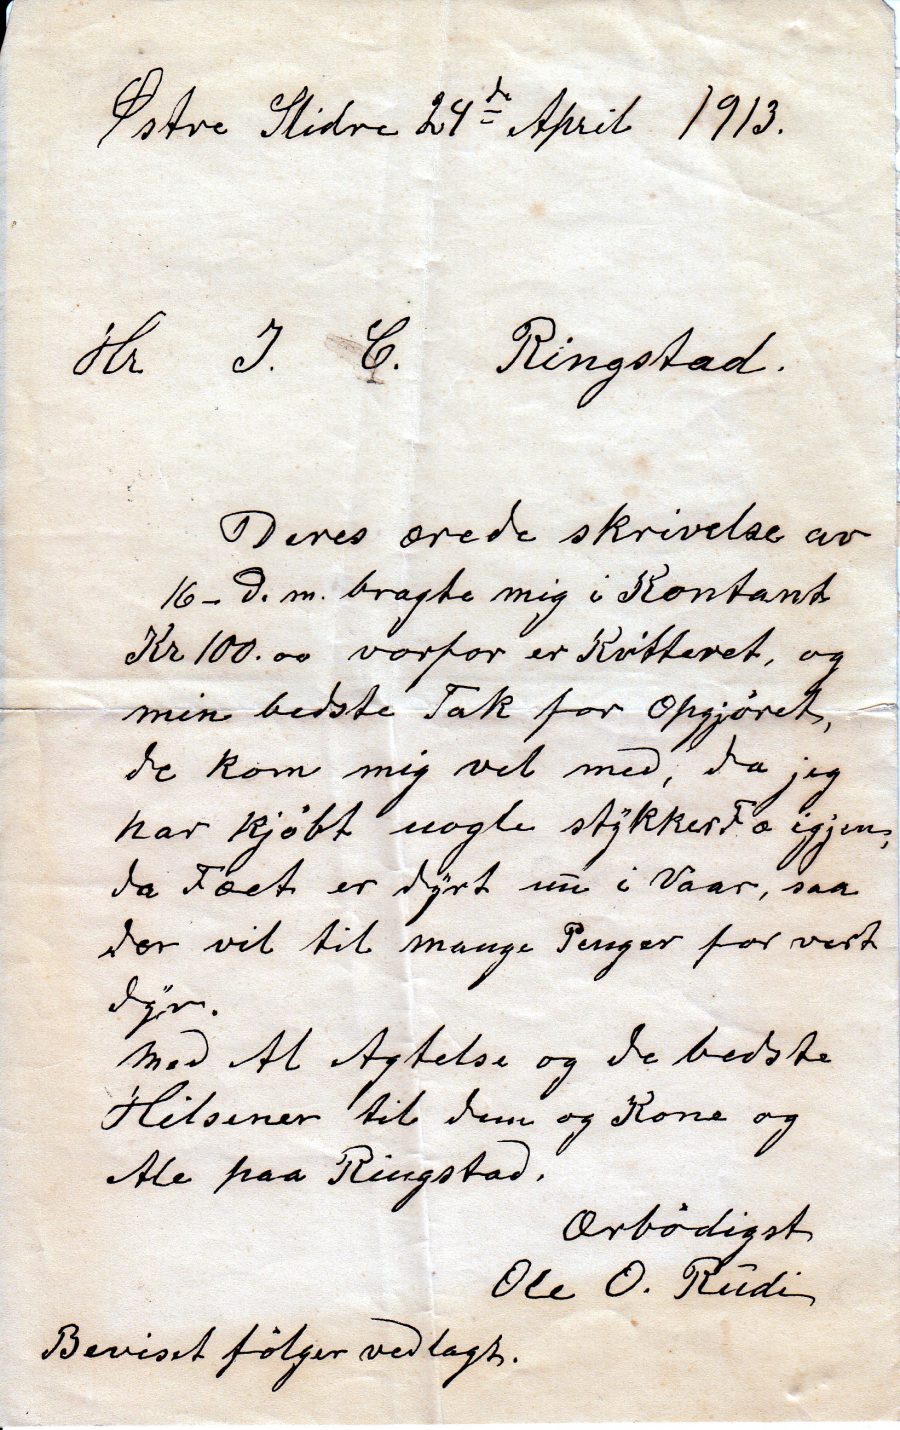 Østre Slidre 24de April 1913.
Hr J. C. Ringstad.
Deres ærede skrivelse av
16 – d. m. bragte mig i Kontant
Kr 100.00 vorfor er Kvitteret, og
min bedste Tak for Opgjöret,
de kom mig vel med, da jeg
har kjöbt nogle stykker Fæ igjen,
da Fæet er dyrt nu i Vaar, saa
der vil til mange Penger for vert
dyr.
Med Al Agtelse og de bedste
Hilsener til dem og Kone og
Ale paa Ringstad.
Ærbödigst
Ole O. Rudi
Beviset fölger vedlagt.